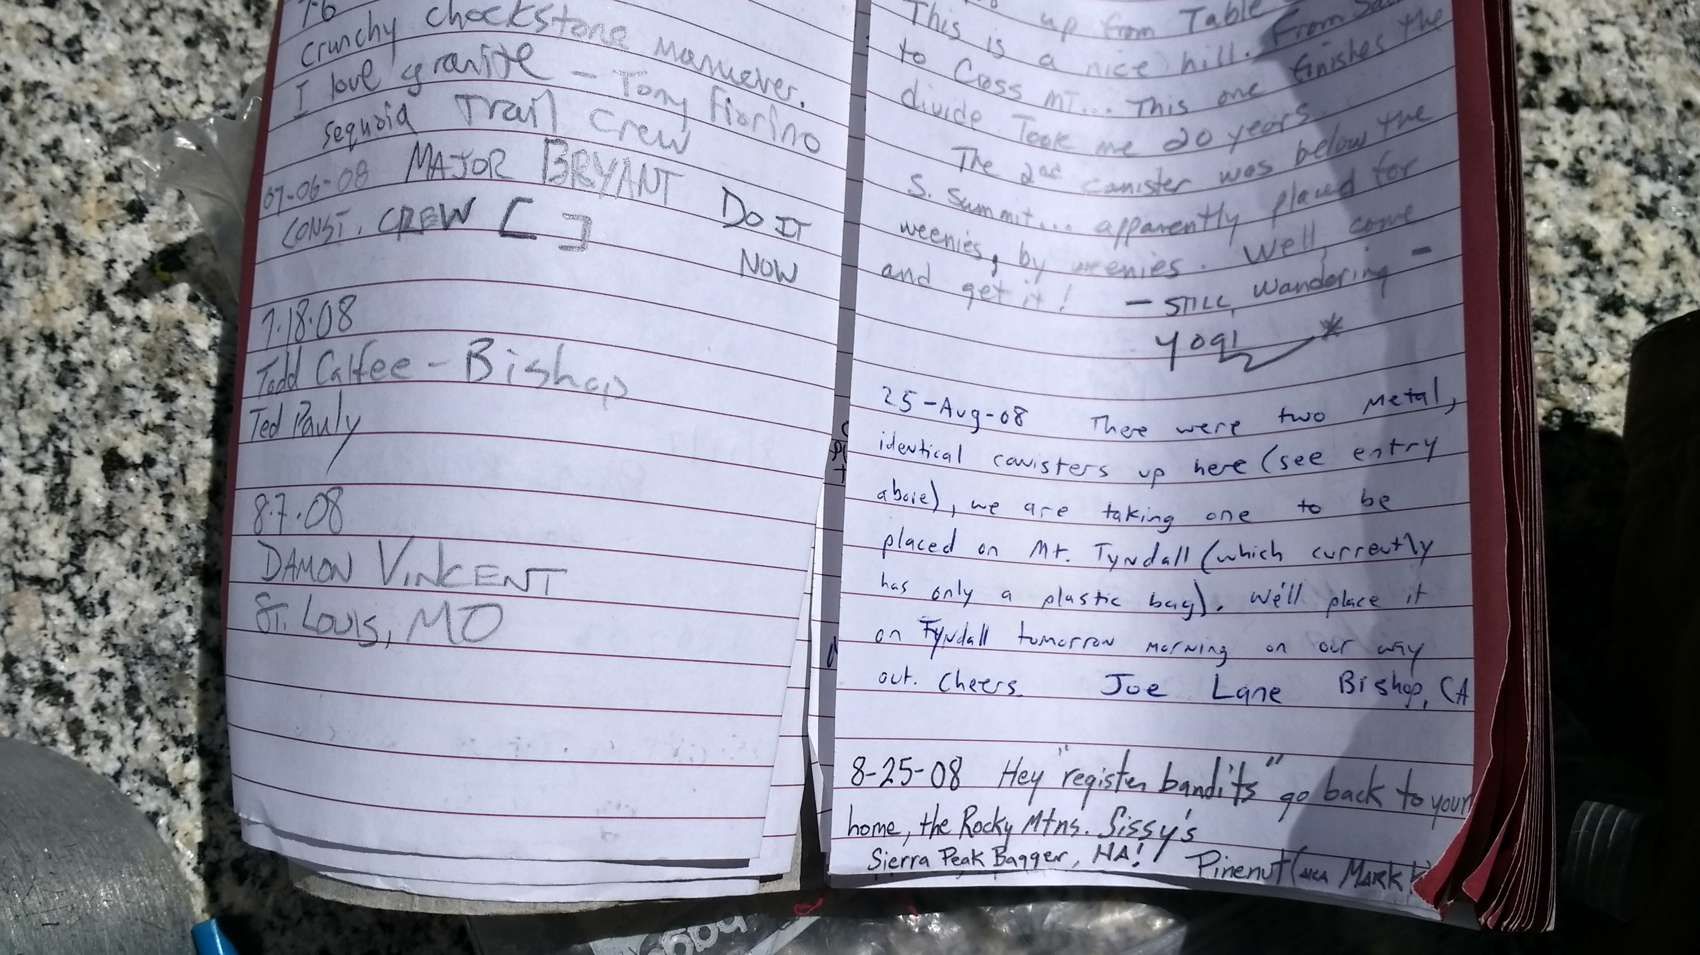 7-6
crunchy chockstone manuever.
I love granite - Tony Fiorino
Sequoia Trail Crew
07-06-08 MAJOR BRYANT DO IT
CONST. CREW [ ] NOW
7.18.08
Todd Calfee - Bishop
Ted Pauly
8.7.08
DAMON VINCENT
ST. LOUIS, MO
up from Table
This is a nice hill. From
to Cass MT... This one finishes the
divide Took me 20 years.
The 2nd canister was below the
S. Summit... apparently placed for
weenies, by weenies. Well, come
and get it! - STILL Wandering -
Yogi *
25-Aug-08 There were two metal,
identical canisters up here (see entry
above), we are taking one to be
placed on Mt. Tyndall (which currently
has only a plastic bag). We'll place it
on Tyndall tomorrow morning on our way
out. Cheers. Joe Lane Bishop, CA
8-25-08 Hey "register bandits" go back to your
home, the Rocky Mtns. Sissy's
Sierra Peak Bagger, HA! Pinenut (AKA MARK